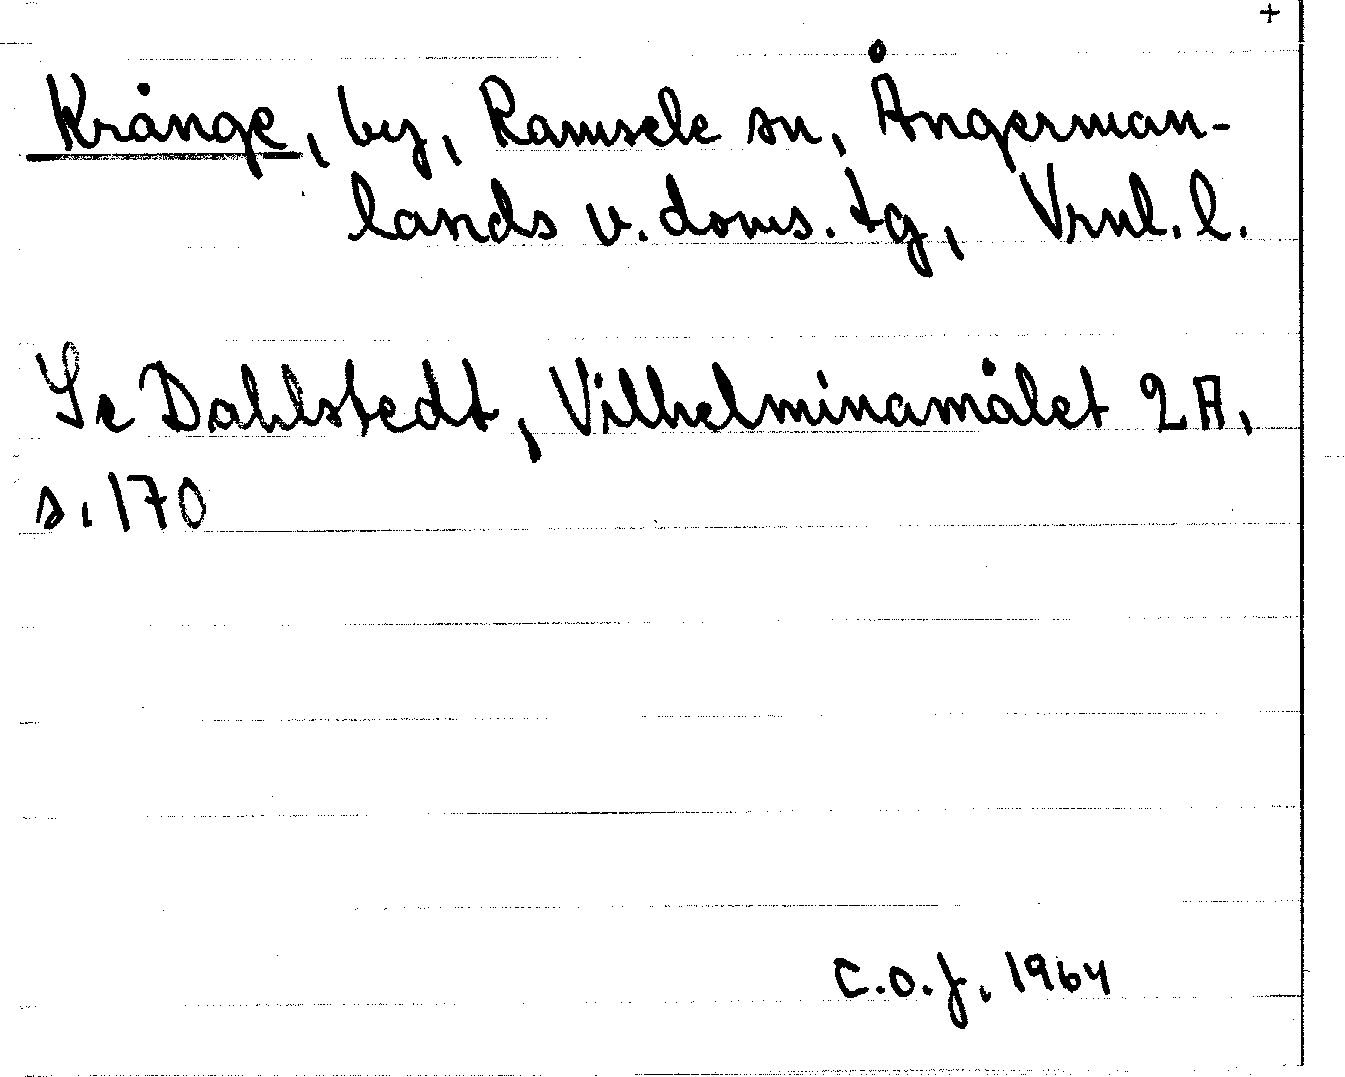 +
Krånge, by, Ramsele sn, Ångerman-
lands v. doms. tg, Vrnl. l.
Se Dahlstedt, Vilhelminamålet 2A,
s. 170
C.O.J. 1964